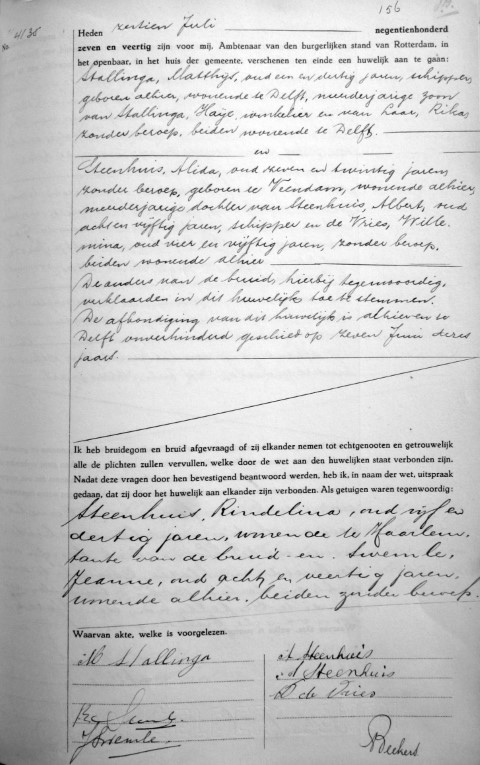 156
4136
Heden zestien Juli negentienhonderd
zeven en veertig zijn voor mij, Ambtenaar van den burgerlijken stand van Rotterdam, in
het openbaar, in het huis der gemeente, verschenen ten einde een huwelijk aan te gaan:
Stallinga, Matthijs, oud een en dertig jaren, schipper,
geboren alhier, wonende te Delft, meerderjarige zoon
van Stallinga, Haije, winkelier en van Laar, Rika,
zonder beroep, beiden wonende te Delft.
en
Steenhuis, Alida, oud zeven en twintig jaren,
zonder beroep, geboren te Veendam, wonende alhier,
meerderjarige dochter van Steenhuis, Albert, oud
acht en vijftig jaren, schipper en de Vries, Wille-
mina, oud vier en vijftig jaren, zonder beroep,
beiden wonende alhier
De ouders van de bruid, hierbij tegenwoordig,
verklaarden in dit huwelijk toe te stemmen.
De afkondiging van dit huwelijk is alhier en te
Delft onverhinderd geschied op zeven Juni dezes
jaars.
Ik heb bruidegom en bruid afgevraagd of zij elkander nemen tot echtgenooten en getrouwelijk
alle de plichten zullen vervullen, welke door de wet aan den huwelijken staat verbonden zijn.
Nadat deze vragen door hen bevestigend beantwoord werden, heb ik, in naam der wet, uitspraak
gedaan, dat zij door het huwelijk aan elkander zijn verbonden. Als getuigen waren tegenwoordig:
Steenhuis, Rindelina, oud vijf en
dertig jaren, wonende te Haarlem,
tante van de bruid en Swemle,
Jeanne, oud acht en veertig jaren,
wonende alhier, beiden zonder beroep.
Waarvan akte, welke is voorgelezen.
M Stallinga
A Steenhuis
A Steenhuis
D de Vries
Beekers